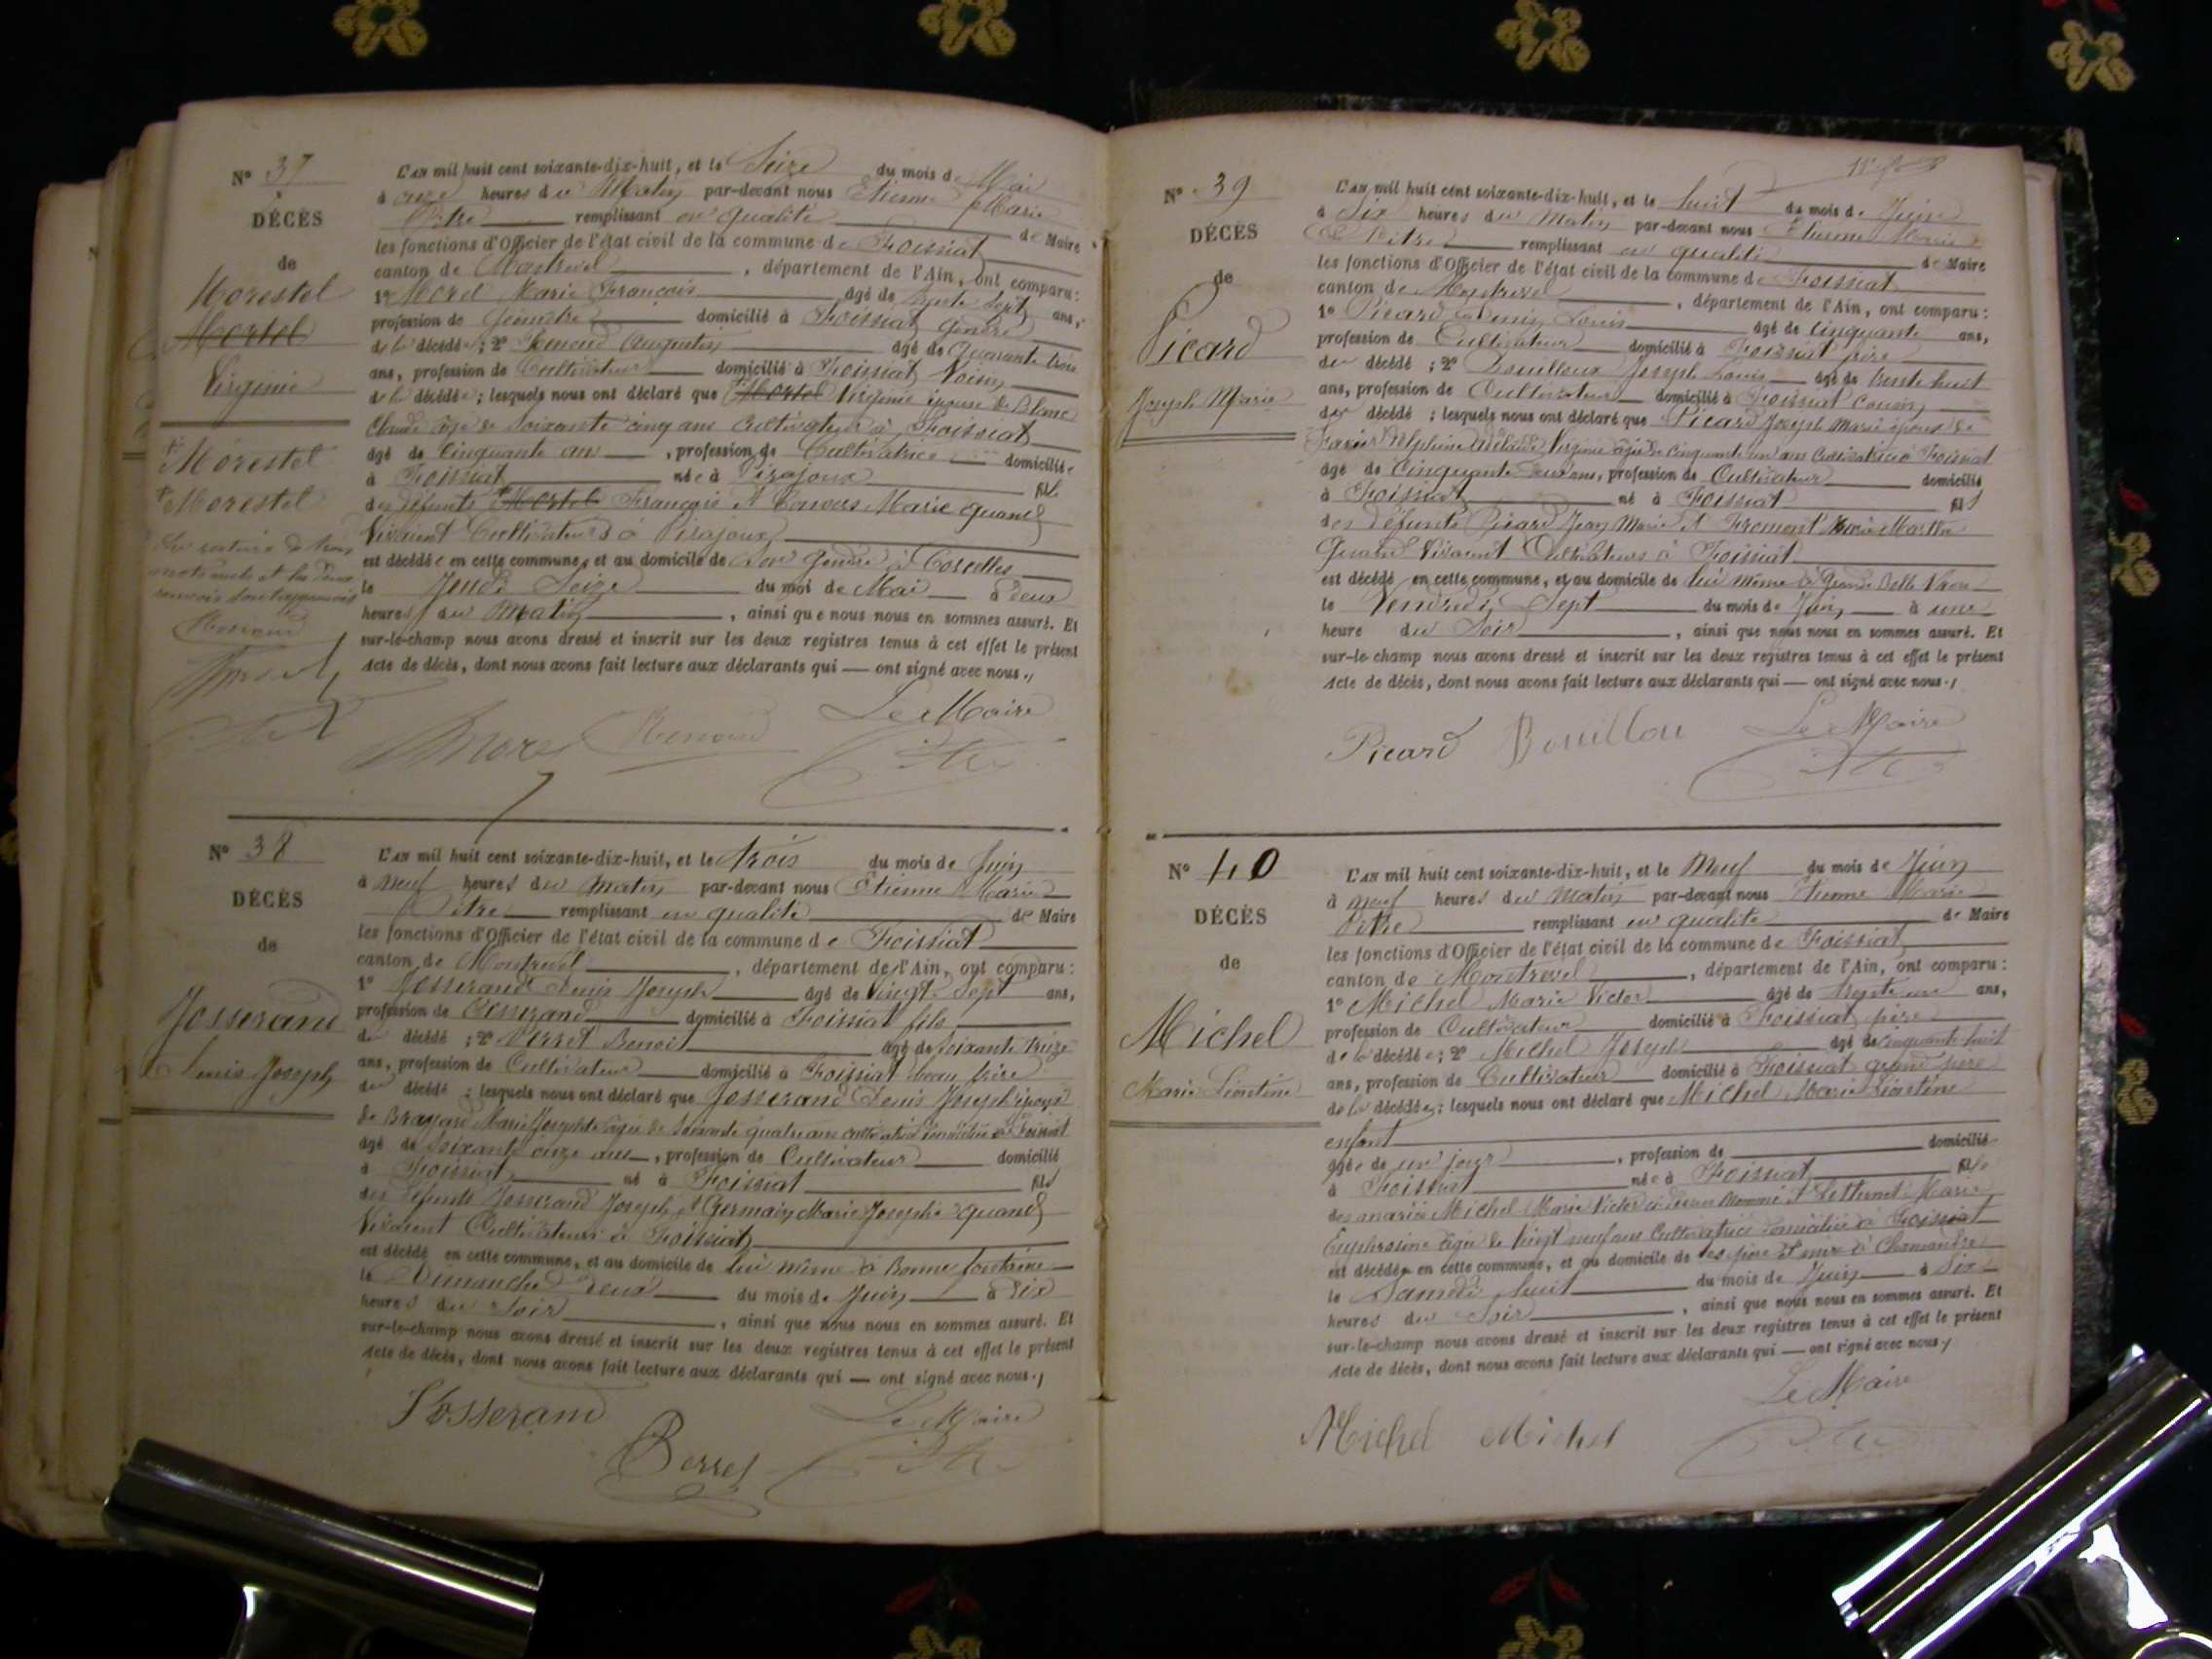 N° 37
DÉCÈS
de
Morestel
Mortel
Virginie
+ Morestel
+ Morestel
renvois sont approuvés
L'AN mil huit cent soixante-dix-huit, et le Seize du mois de Mai
à onze heures du Matin par-devant nous Etienne Marie
Pitre remplissant en qualité de Maire
les fonctions d'Officier de l'état civil de la commune de Foissiat
canton de Montrevel, département de l'Ain, ont comparu:
1° Morel Marie François âgé de trente sept ans,
profession de Géomètre domicilié à Foissiat Gendre
de la décédée; 2° Augustin âgé de Quarante trois
ans, profession de Cultivateur domicilié à Foissiat Voisin
de la décédée; lesquels nous ont déclaré que + Mortel Virginie épouse de Blanc
Claude âgé de Soixante cinq ans Cultivateur à Foissiat
âgé de Cinquante ans, profession de Cultivatrice domiciliée
à Foissiat née à Pirajoux fille
des défunts + Mortel François et Marie quand
Vivaient Cultivateurs à Pirajoux
est décédée en cette commune, et au domicile de son Gendre à Corcelles
le Jeudi Seize du moi de Mai à deux
heures du Matin, ainsi que nous nous en sommes assuré. Et
sur-le-champ nous avons dressé et inscrit sur les deux registres tenus à cet effet le présent
acte de décès, dont nous avons fait lecture aux déclarants qui — ont signé avec nous.
Le Maire
Morel Renoud
N° 38
DÉCÈS
de
Josserand
Denis Joseph
L'AN mil huit cent soixante-dix-huit, et le trois du mois de Juin
à Neuf heures du Matin par-devant nous Etienne Marie
Pitre remplissant en qualité de Maire
les fonctions d'Officier de l'état civil de la commune de Foissiat
canton de Montrevel, département de l'Ain, ont comparu:
1° Josserand Denis Joseph âgé de Vingt-Sept ans,
profession de Tisserand domicilié à Foissiat fils
du décédé; 2° Perret Benoit âgé de Soixante treize
ans, profession de Cultivateur domicilié à Foissiat beau frère
du décédé; lesquels nous ont déclaré que Josserand Denis Joseph époux
de Brayard Marie Josephte âgée de Soixante quatre ans cultivatrice domiciliée à Foissiat
âgé de Soixante onze ans, profession de Cultivateur domicilié
à Foissiat né à Foissiat fils
des défunts Josserand Joseph et Germain Marie Josephe quand
Vivaient Cultivateurs à Foissiat
est décédé en cette commune, et au domicile de lui même à Bonne fontaine
le Dimanche deux du mois de Juin à dix
heures du Soir, ainsi que nous nous en sommes assuré. Et
sur-le-champ nous avons dressé et inscrit sur les deux registres tenus à cet effet le présent
acte de décès, dont nous avons fait lecture aux déclarants qui — ont signé avec nous.
Josserand Perret Le Maire
N° 39
DÉCÈS
de
Picard
Joseph Marie
L'AN mil huit cent soixante-dix-huit, et le huit du mois de Juin
à Six heures du Matin par-devant nous Etienne Marie
Pitre remplissant en qualité de Maire
les fonctions d'Officier de l'état civil de la commune de Foissiat
canton de Montrevel, département de l'Ain, ont comparu:
1° Picard Denis Louis âgé de Cinquante ans,
profession de Cultivateur domicilié à Foissiat frère
du décédé; 2° Bouilloux Joseph Louis âgé de trente huit
ans, profession de Cultivateur domicilié à Foissiat Cousin
du décédé; lesquels nous ont déclaré que Picard Joseph Marie époux de
Delphine Adélaide Virginie âgée de Cinquante un ans Cultivatrice à Foissiat
âgé de Cinquante deux ans, profession de Cultivateur domicilié
à Foissiat né à Foissiat fils
des défunts Picard Jean Marie et Froment Marie Marthe
Quand Vivaient Cultivateurs à Foissiat
est décédé en cette commune, et au domicile de lui même à Grande Belle
le Vendredi Sept du mois de Juin à une
heure du Soir, ainsi que nous nous en sommes assuré. Et
sur-le-champ nous avons dressé et inscrit sur les deux registres tenus à cet effet le présent
acte de décès, dont nous avons fait lecture aux déclarants qui — ont signé avec nous.
Picard Bouillou Le Maire
N° 40
DÉCÈS
de
Michel
Marie Léontine
L'AN mil huit cent soixante-dix-huit, et le Neuf du mois de Juin
à neuf heures du Matin par-devant nous Etienne Marie
Pitre remplissant en qualité de Maire
les fonctions d'Officier de l'état civil de la commune de Foissiat
canton de Montrevel, département de l'Ain, ont comparu:
1° Michel Marie Victor âgé de trente un ans,
profession de Cultivateur domicilié à Foissiat père
de la décédée; 2° Michel Joseph âgé de cinquante huit
ans, profession de Cultivateur domicilié à Foissiat grand père
de la décédée; lesquels nous ont déclaré que Michel Marie Léontine
enfant
âgée de un jour, profession de domicilié
à Foissiat née à Foissiat fille
des mariés Michel Marie Victor ci dessus Nommé et Marie
Euphrosine âgée de Vingt neuf ans Cultivatrice domiciliée à Foissiat
est décédée en cette commune, et au domicile de ses père et mère à Chamandre
le Samedi huit du mois de Juin à Six
heures du Soir, ainsi que nous nous en sommes assuré. Et
sur-le-champ nous avons dressé et inscrit sur les deux registres tenus à cet effet le présent
acte de décès, dont nous avons fait lecture aux déclarants qui — ont signé avec nous.
Le Maire
Michel Michel